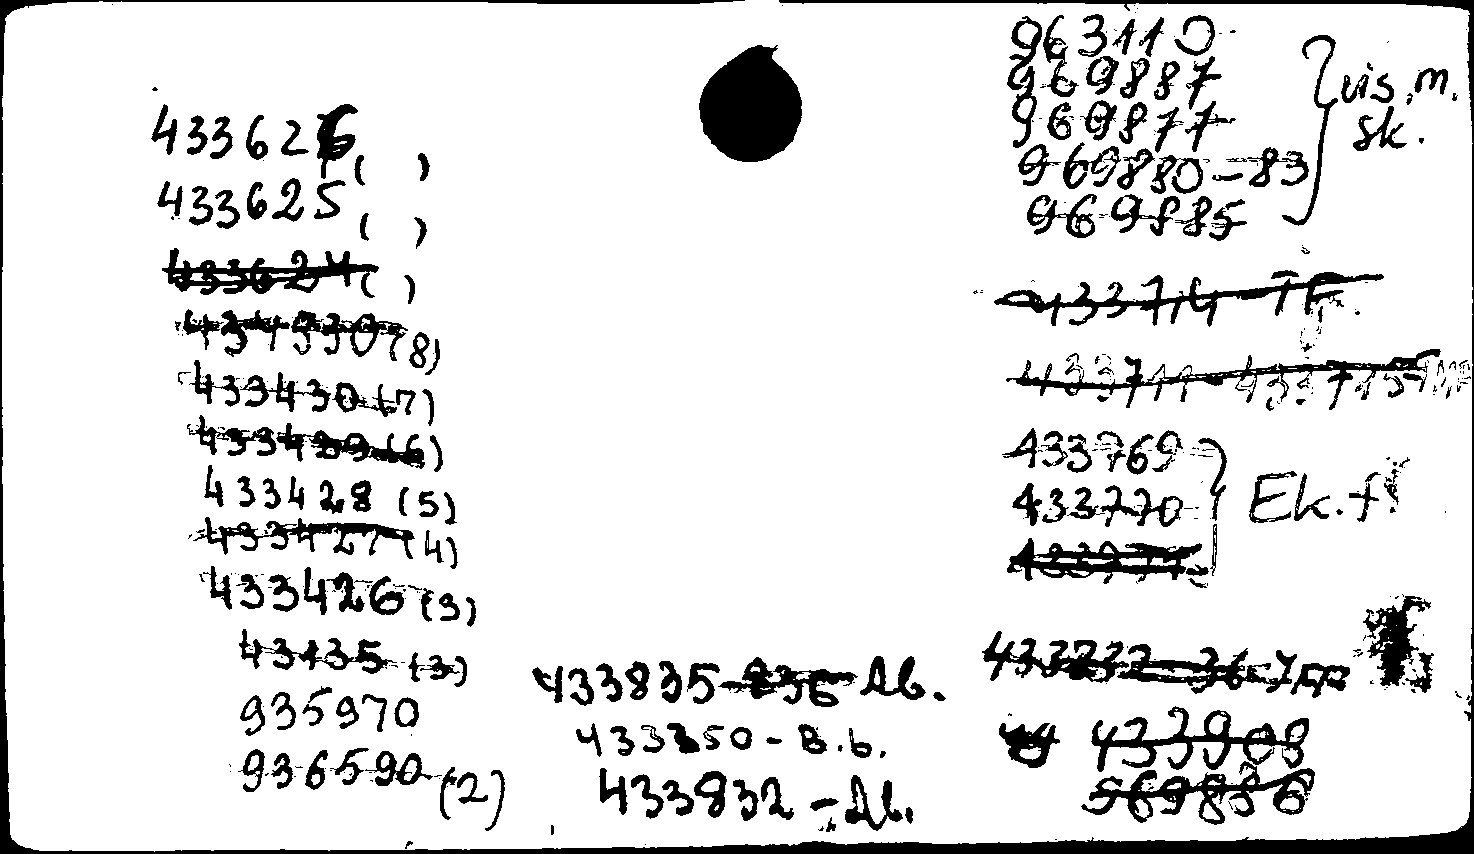 433626 ( )
433625 ( )
433624 ( )
(8)
433430 (7)
433429 (6)
433428 (5)
433427 (4)
433426 (3)
43435 (3)
935970
936590 (2)
433835-836 Ab.
433850 - B.b.
433832 - Ab.
963110
969887
969877
969880-83
969885
vis.m.
sk.
433714 - TF.
433711 - 433715
433769
433770
433771
Ek.f.
433832-36
433908
969886